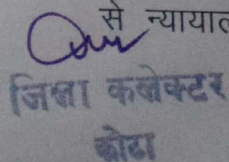 से न्यायाल
जिला कलेक्टर
कोटा